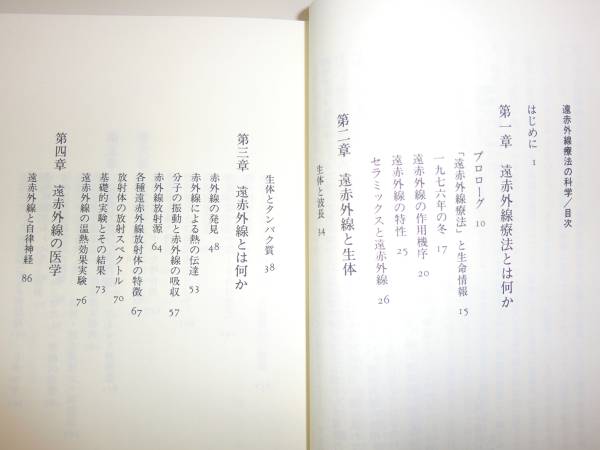 遠赤外線療法の科学／目次
はじめに 1
第一章 遠赤外線療法とは何か
プロローグ 10
「遠赤外線療法」と生命情報 15
一九七六年の冬 17
遠赤外線の作用機序 20
遠赤外線の特性 25
セラミックスと遠赤外線 26
第二章 遠赤外線と生体
生体と波長 34
生体とタンパク質 38
第三章 遠赤外線とは何か
赤外線の発見 48
赤外線による熱の伝達 53
分子の振動と赤外線の吸収 57
赤外線放射源 64
各種遠赤外線放射体の特徴 67
放射体の放射スペクトル 70
基礎的実験とその結果 73
遠赤外線の温熱効果実験 76
第四章 遠赤外線の医学
遠赤外線と自律神経 86